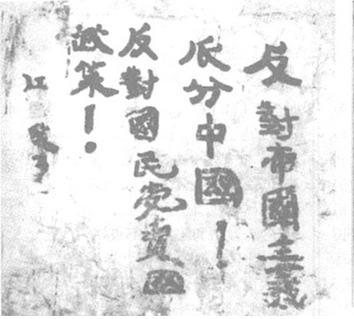 反對帝國主義
瓜分中國！
反對國民党賣國
政策！